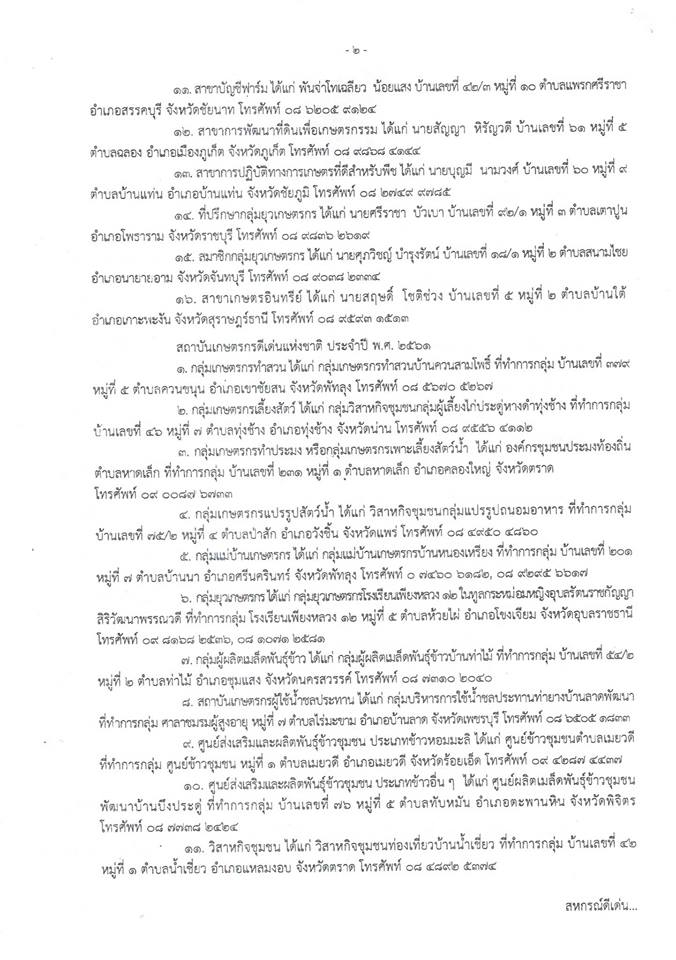 - ๒ -
๑๑. สาขาบัญชีฟาร์ม ได้แก่ พันจ่าโทเฉลียว น้อยแสง บ้านเลขที่ ๔๒/๓ หมู่ที่ ๑๐ ตำบลแพรกศรีราชา
อำเภอสรรคบุรี จังหวัดชัยนาท โทรศัพท์ ๐๘ ๖๒๐๕ ๙๑๒๔
๑๒. สาขาการพัฒนาที่ดินเพื่อเกษตรกรรม ได้แก่ นายสัญญา หิรัญวดี บ้านเลขที่ ๖๑ หมู่ที่ ๕
ตำบลฉลอง อำเภอเมืองภูเก็ต จังหวัดภูเก็ต โทรศัพท์ ๐๘ ๙๘๖๘ ๔๑๔๔
๑๓. สาขาการปฏิบัติทางการเกษตรที่ดีสำหรับพืช ได้แก่ นายบุญมี นามวงศ์ บ้านเลขที่ ๖๐ หมู่ที่ ๙
ตำบลบ้านแท่น อำเภอบ้านแท่น จังหวัดชัยภูมิ โทรศัพท์ ๐๘ ๒๗๔๙ ๙๗๘๕
๑๔. ที่ปรึกษากลุ่มยุวเกษตรกร ได้แก่ นายศรีราชา บัวเบา บ้านเลขที่ ๙๒/๑ หมู่ที่ ๓ ตำบลเตาปูน
อำเภอโพธาราม จังหวัดราชบุรี โทรศัพท์ ๐๘ ๙๘๓๖ ๒๖๑๙
๑๕. สมาชิกกลุ่มยุวเกษตรกร ได้แก่ นายศุภวิชญ์ บำรุงรัตน์ บ้านเลขที่ ๑๘/๑ หมู่ที่ ๒ ตำบลสนามไชย
อำเภอนายายอาม จังหวัดจันทบุรี โทรศัพท์ ๐๘ ๙๐๓๘ ๒๓๓๔
๑๖. สาขาเกษตรอินทรีย์ ได้แก่ นายสฤษดิ์ โชติช่วง บ้านเลขที่ ๕ หมู่ที่ ๒ ตำบลบ้านใต้
อำเภอเกาะพะงัน จังหวัดสุราษฎร์ธานี โทรศัพท์ ๐๘ ๙๕๙๓ ๑๕๑๓
สถาบันเกษตรกรดีเด่นแห่งชาติ ประจำปี พ.ศ. ๒๕๖๑
๑. กลุ่มเกษตรกรทำสวน ได้แก่ กลุ่มเกษตรกรทำสวนบ้านควนสามโพธิ์ ที่ทำการกลุ่ม บ้านเลขที่ ๓๗๙
หมู่ที่ ๕ ตำบลควนขนุน อำเภอเขาชัยสน จังหวัดพัทลุง โทรศัพท์ ๐๘ ๕๖๗๐ ๕๒๖๗
๒. กลุ่มเกษตรกรเลี้ยงสัตว์ ได้แก่ กลุ่มวิสาหกิจชุมชนกลุ่มผู้เลี้ยงไก่ประดู่หางดำทุ่งช้าง ที่ทำการกลุ่ม
บ้านเลขที่ ๔๖ หมู่ที่ ๗ ตำบลทุ่งช้าง อำเภอทุ่งช้าง จังหวัดน่าน โทรศัพท์ ๐๘ ๙๕๕๖ ๔๑๑๒
๓. กลุ่มเกษตรกรทำประมง หรือกลุ่มเกษตรกรเพาะเลี้ยงสัตว์น้ำ ได้แก่ องค์กรชุมชนประมงท้องถิ่น
ตำบลหาดเล็ก ที่ทำการกลุ่ม บ้านเลขที่ ๒๓๑ หมู่ที่ ๑ ตำบลหาดเล็ก อำเภอคลองใหญ่ จังหวัดตราด
โทรศัพท์ ๐๙ ๐๐๘๗ ๖๗๓๓
๔. กลุ่มเกษตรกรแปรรูปสัตว์น้ำ ได้แก่ วิสาหกิจชุมชนกลุ่มแปรรูปถนอมอาหาร ที่ทำการกลุ่ม
บ้านเลขที่ ๗๕/๒ หมู่ที่ ๔ ตำบลป่าสัก อำเภอวังชิ้น จังหวัดแพร่ โทรศัพท์ ๐๘ ๔๙๕๐ ๔๘๖๐
๕. กลุ่มแม่บ้านเกษตรกร ได้แก่ กลุ่มแม่บ้านเกษตรกรบ้านหนองเหรียง ที่ทำการกลุ่ม บ้านเลขที่ ๒๐๑
หมู่ที่ ๗ ตำบลบ้านนา อำเภอศรีนครินทร์ จังหวัดพัทลุง โทรศัพท์ ๐ ๗๔๖๐ ๖๑๘๒, ๐๘ ๙๒๙๕ ๖๖๑๗
๖. กลุ่มยุวเกษตรกร ได้แก่ กลุ่มยุวเกษตรกรโรงเรียนเพียงหลวง ๑๒ ในทูลกระหม่อมหญิงอุบลรัตนราชกัญญา
สิริวัฒนาพรรณวดี ที่ทำการกลุ่ม โรงเรียนเพียงหลวง ๑๒ หมู่ที่ ๕ ตำบลห้วยไผ่ อำเภอโขงเจียม จังหวัดอุบลราชธานี
โทรศัพท์ ๐๙ ๘๑๖๘ ๒๕๓๖, ๐๘ ๑๐๗๑ ๒๕๘๑
๗. กลุ่มผู้ผลิตเมล็ดพันธุ์ข้าว ได้แก่ กลุ่มผู้ผลิตเมล็ดพันธุ์ข้าวบ้านท่าไม้ ที่ทำการกลุ่ม บ้านเลขที่ ๕๔/๒
หมู่ที่ ๒ ตำบลท่าไม้ อำเภอชุมแสง จังหวัดนครสวรรค์ โทรศัพท์ ๐๘ ๗๓๑๐ ๒๐๔๐
๘. สถาบันเกษตรกรผู้ใช้น้ำชลประทาน ได้แก่ กลุ่มบริหารการใช้น้ำชลประทานท่ายางบ้านลาดพัฒนา
ที่ทำการกลุ่ม ศาลาชมรมผู้สูงอายุ หมู่ที่ ๗ ตำบลไร่มะขาม อำเภอบ้านลาด จังหวัดเพชรบุรี โทรศัพท์ ๐๘ ๖๕๐๕ ๑๘๓๓
๙. ศูนย์ส่งเสริมและผลิตพันธุ์ข้าวชุมชน ประเภทข้าวหอมมะลิ ได้แก่ ศูนย์ข้าวชุมชนตำบลเมยวดี
ที่ทำการกลุ่ม ศูนย์ข้าวชุมชน หมู่ที่ ๑ ตำบลเมยวดี อำเภอเมยวดี จังหวัดร้อยเอ็ด โทรศัพท์ ๐๙ ๔๒๘๗ ๔๔๓๗
๑๐. ศูนย์ส่งเสริมและผลิตพันธุ์ข้าวชุมชน ประเภทข้าวอื่น ๆ ได้แก่ ศูนย์ผลิตเมล็ดพันธุ์ข้าวชุมชน
พัฒนาบ้านบึงประดู่ ที่ทำการกลุ่ม บ้านเลขที่ ๗๖ หมู่ที่ ๕ ตำบลทับหมัน อำเภอตะพานหิน จังหวัดพิจิตร
โทรศัพท์ ๐๘ ๗๗๓๘ ๒๔๒๔
๑๑. วิสาหกิจชุมชน ได้แก่ วิสาหกิจชุมชนท่องเที่ยวบ้านน้ำเชี่ยว ที่ทำการกลุ่ม บ้านเลขที่ ๔๒
หมู่ที่ ๑ ตำบลน้ำเชี่ยว อำเภอแหลมงอบ จังหวัดตราด โทรศัพท์ ๐๘ ๔๘๙๒ ๕๓๗๔
สหกรณ์ดีเด่น...